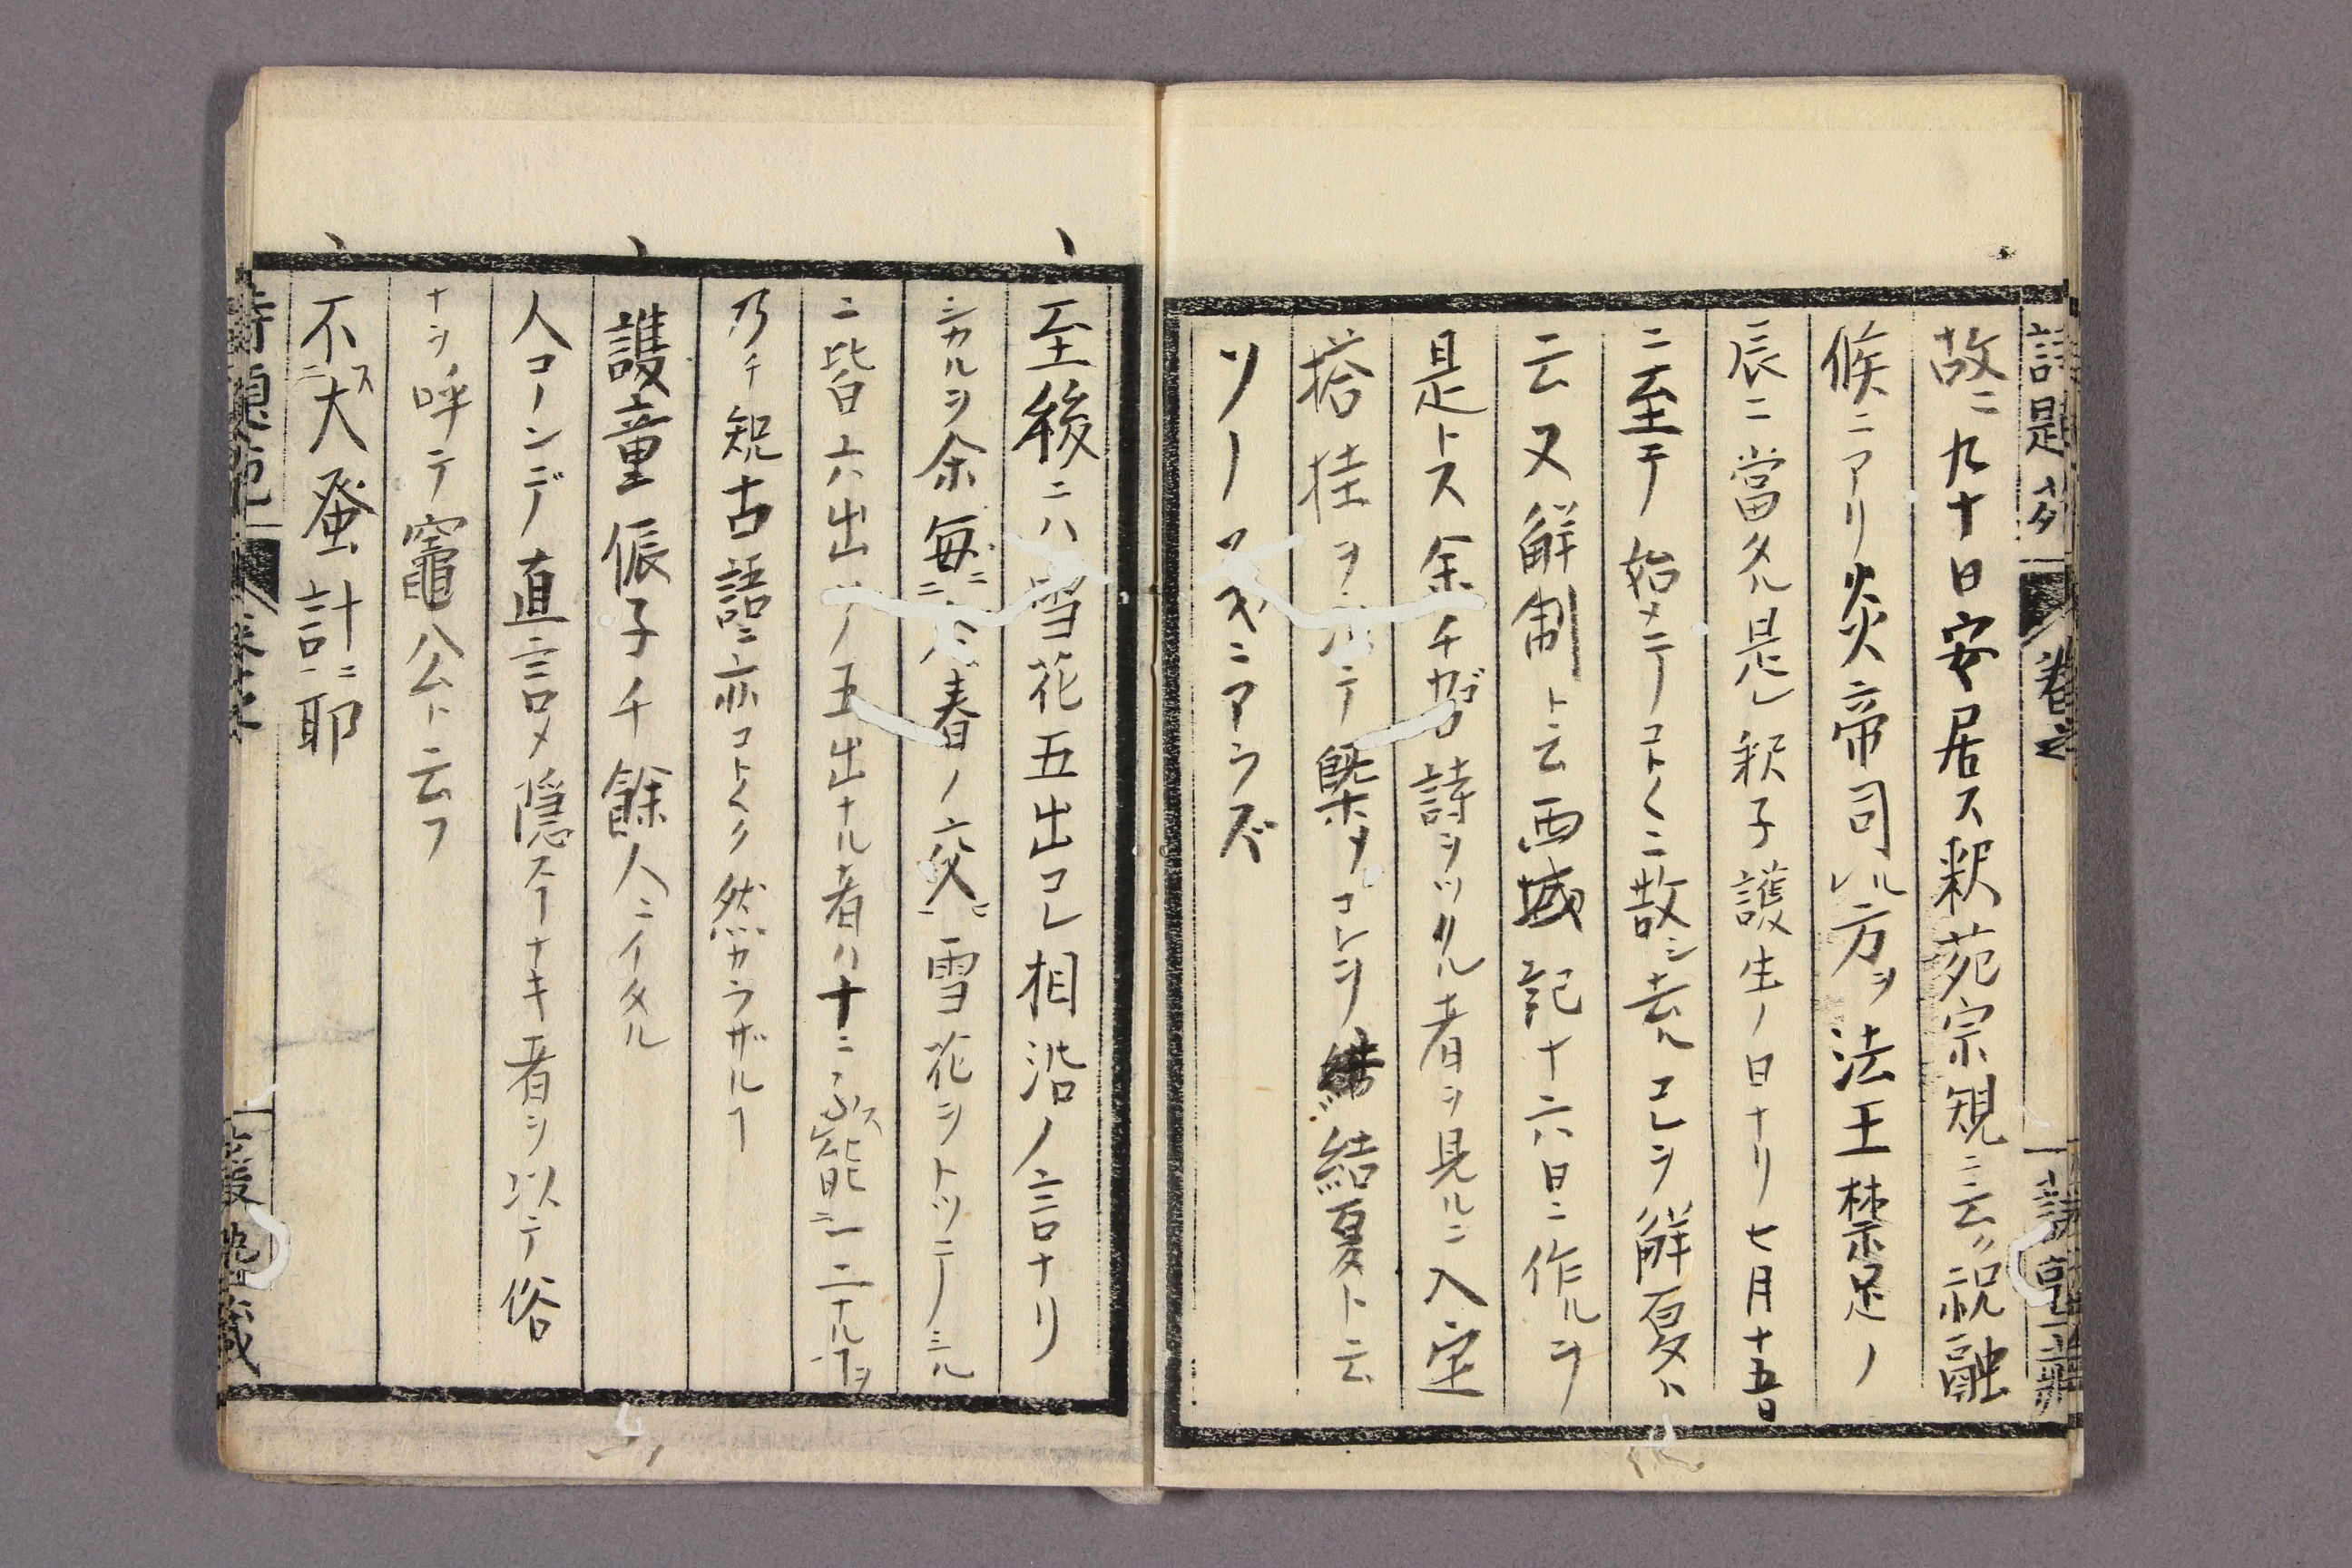 故ニ九十日安居ス釈苑宗規ニ云ク祝融
候ニアリ炎帝司ルレ方ヲ法王禁足ノ
辰ニ當タル是レ釈子護生ノ日ナリ七月十五日
ニ至テ始メテコト〱ニ散シ去ルコレヲ解夏ハ
云又解制ト云西域記十六日ニ作ルヲ
是トス余チカゴロ詩ヲツクル者ヲ見ルニ入定
搭挂ヲ テ槩 コレヲ 結夏ト云
ソノ ニアラズ
至後ニハ雪花五出コレ相沿ノ言ナリ
シカルヲ余毎ニ 春ノ交ニ雪花ヲトツテ ミル
ニ皆六出 ノ五出ナル者ハ十ニ不能ス一ニナルヿヲ
乃チ知古語ニ亦コト〱ク然カラザルヿ
護童侲子チ餘人ニイタル
人コノンデ直言メ隠スヿナキ者ヲ以テ俗
ナヲ呼テ竈公ト云フ
不ス犬蚤計ニ耶